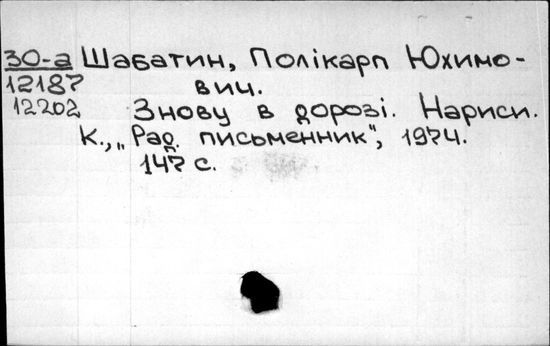 30-а Шабатин, Полікарп Юхимо-
12187 вич.
12202 Знову в дорозі. Нариси.
К., „Рад. письменник", 1974.
147 с.